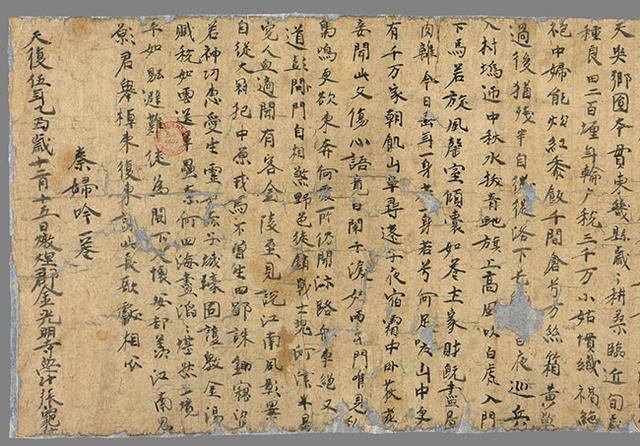 鄉園本貫東畿縣歲〻耕桑臨近甸
種良田二百壥年輸戶稅三千万小姑慣織褐絁
袍中婦能炊紅黍飯千間倉兮万絲箱黃巢
過後猶殘半自從洛下日夜巡兵
入村塢匣中秋水拔青虵旗上高風吹白虎入門
下馬若旋風罄室傾囊如卷土家財既盡骨
肉離今日垂年一身苦一身苦兮何足嗟山中更
有千万家朝飢山草尋蓬子夜宿霜中臥荻花
妾聞此父傷心語竟日闌干淚如雨出門唯見乱
梟鳴更欲東奔何處所仍聞汴路舟車絕又
道彭門自相煞野色徒銷戰士魂河津半是
冤人血適聞有客金陵至見說江南風景異
自從大寇犯中原戎馬不曾生四鄙誅鋤竊盜
若神功惠愛生靈如赤子城壕固護斅金湯
賦稅如雲送軍壘奈何四海盡滔〻湛然一境
如砥避難徒為闕下人懷安却羨江南鬼
願君舉棹東復東詠此長歌獻相公
秦婦吟一卷
天復伍年乙丑歲十二月十五日燉煌郡金光明寺學仕張龜